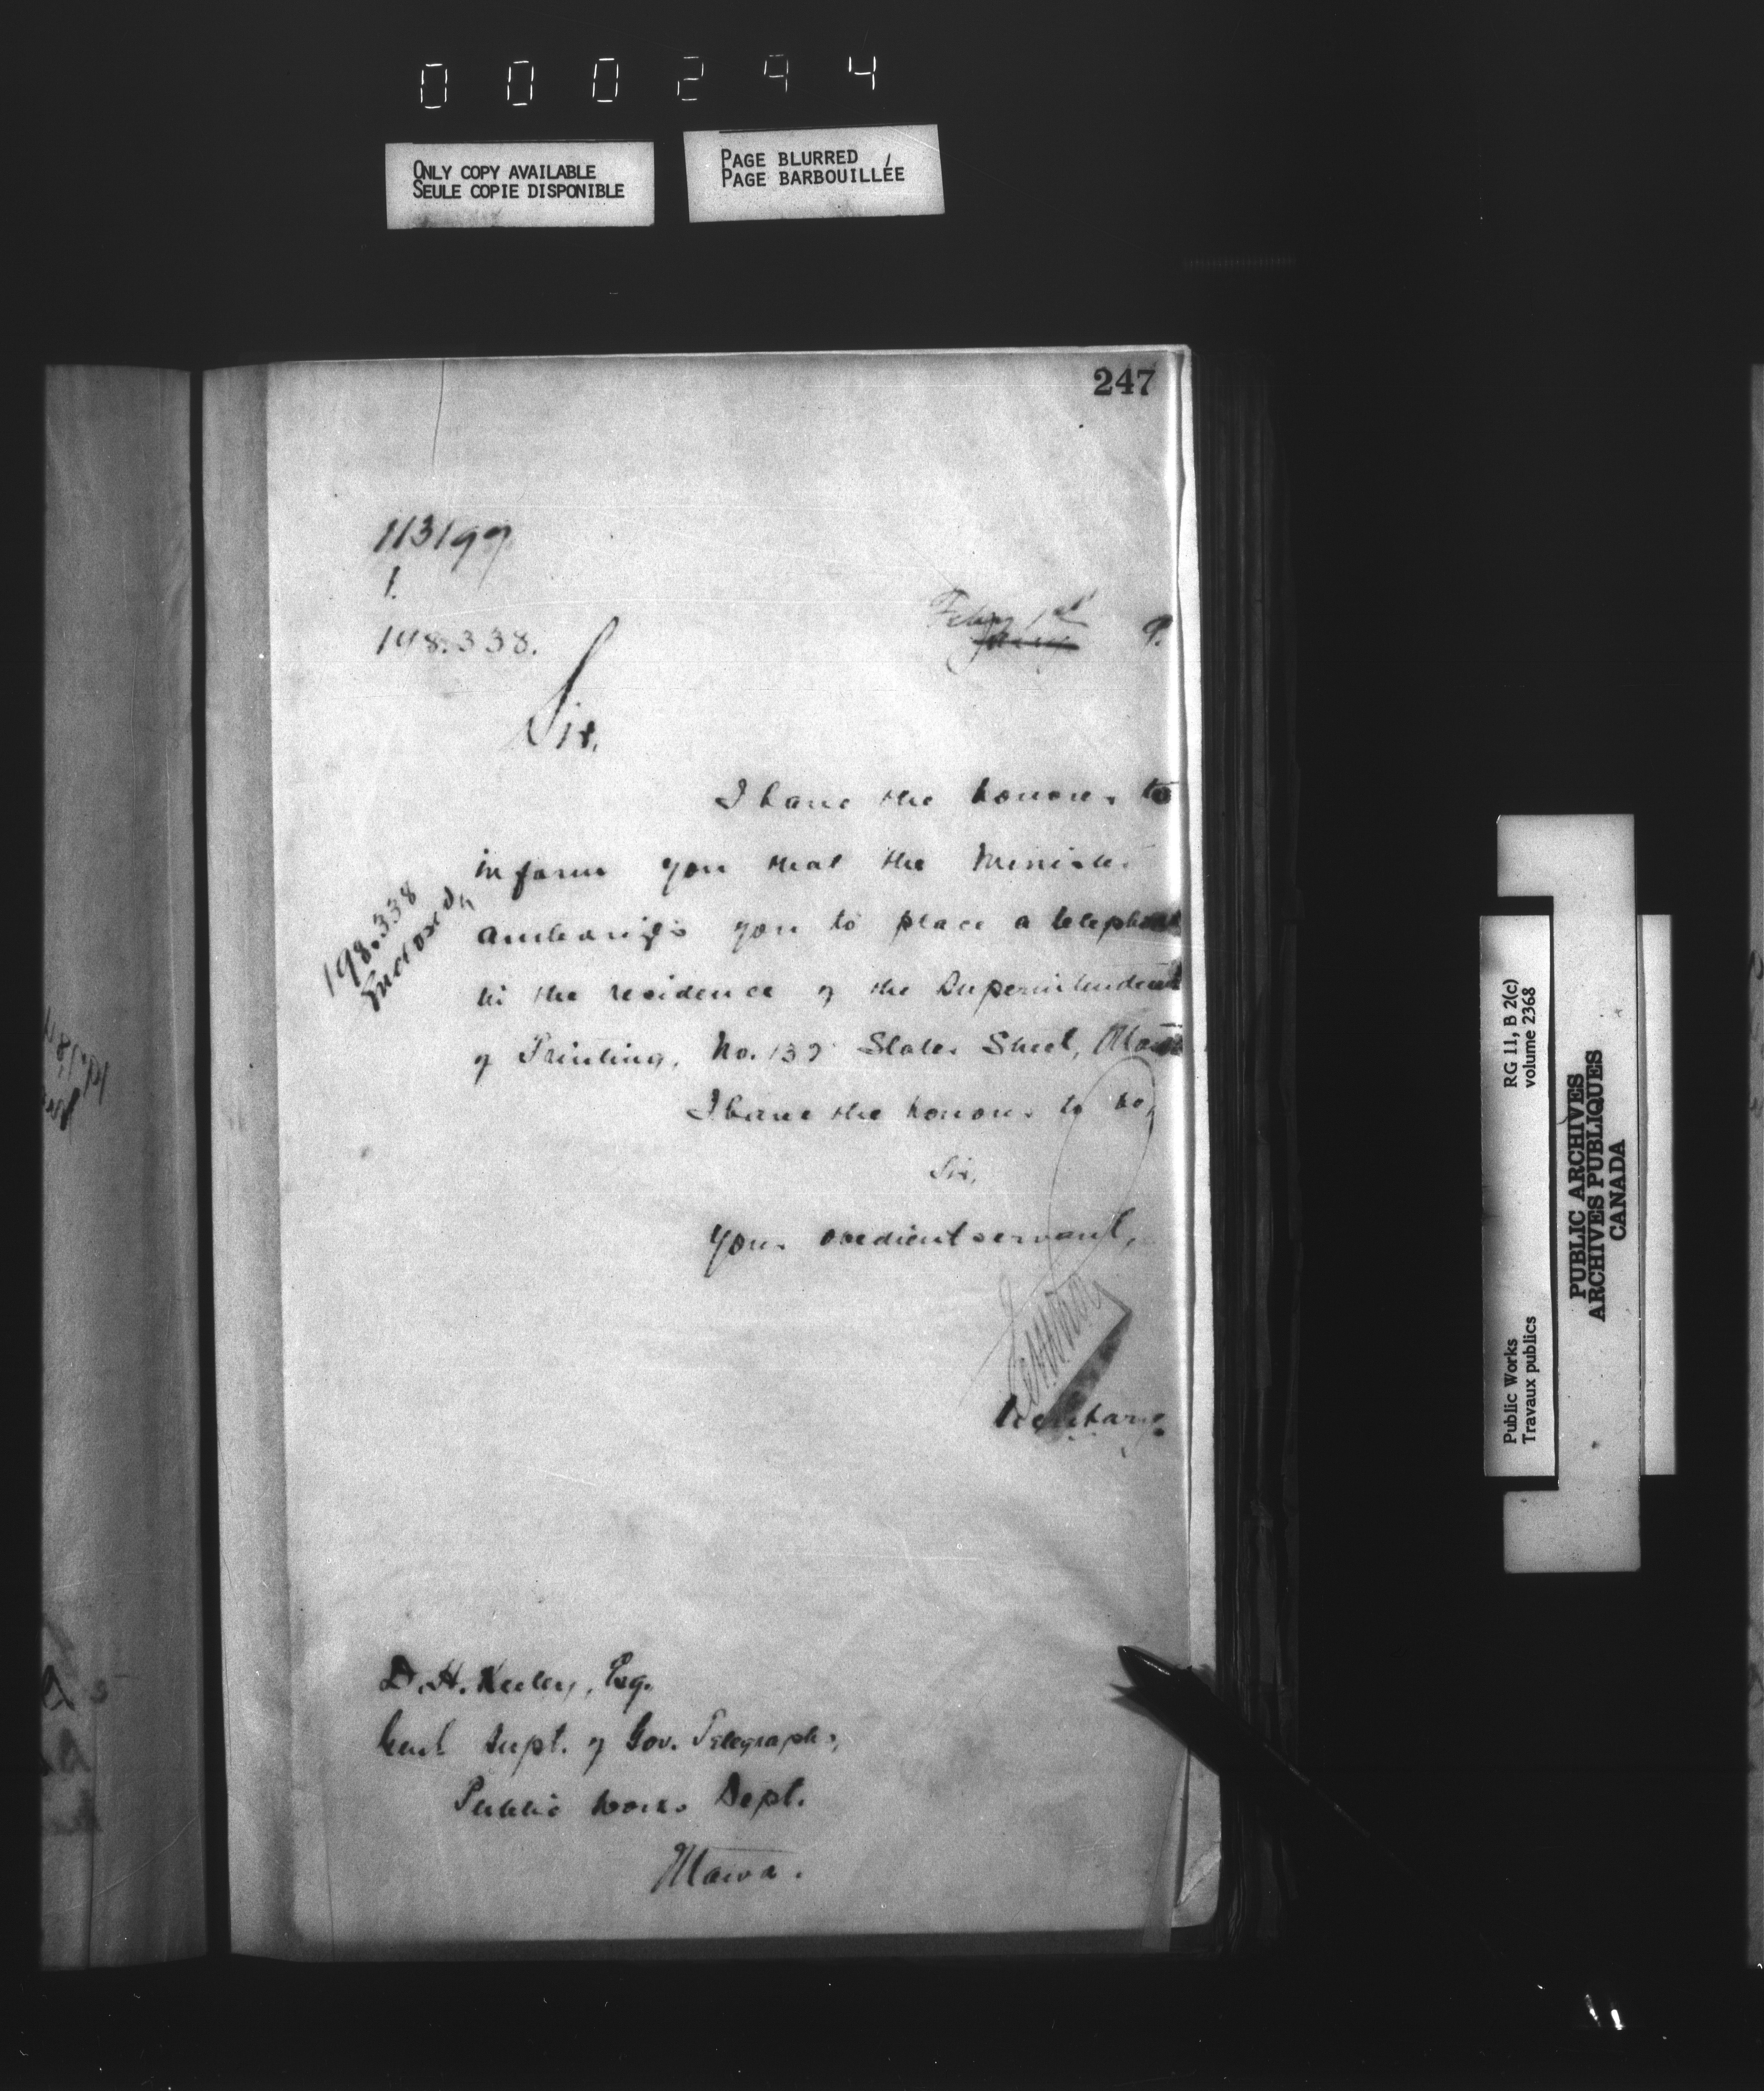 000294
ONLY COPY AVAILABLE
SEULE COPIE DISPONIBLE
PAGE BLURRED
PAGE BARBOUILLÉE
247
113199
1.
198.338.
Feby 1st
Jany 9.
Sir,
I have the honour to
inform you that the Minister
authorizes you to place a telephone
in the residence of the Superintendent
of Printing, No. 139 Slater Street, Ottawa
198.338
Enclosed
I have the honour to be,
Sir,
Your obedient servant,
Secretary.
D. H. Keeley, Esq.
Genl Supt. of Gov. Telegraphs,
Public Works Dept.
Ottawa.
Public Works
Travaux publics
RG 11, B 2(c)
volume 2368
PUBLIC ARCHIVES
ARCHIVES PUBLIQUES
CANADA